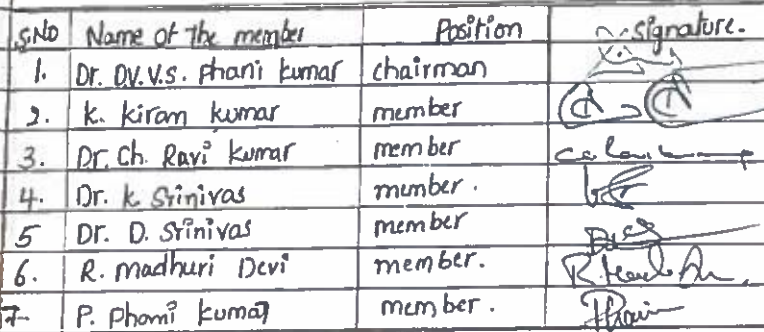 S.NO Name of the member Position Signature.
1. Dr. D.V.V.S. Phani kumar chairman
2. K. Kiram kumar member
3. Dr. Ch. Ravi kumar member
4. Dr. K. Srinivas member.
5 Dr. D. Srinivas member
6. R. madhuri Devi member.
7- P. Phami kumar member.